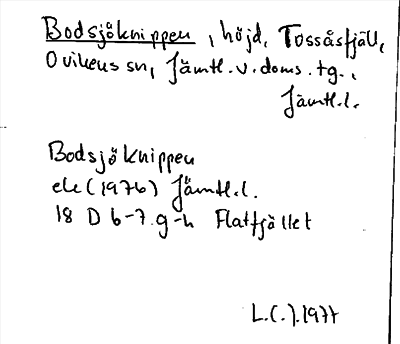 Bodsjöknippen, höjd, Tossåsfjäll,
Ovikens sn, Jämtl. v. doms. tg.,
Jämtl.l.
Bodsjöknippen
ek (1976) Jämtl.l.
18 D 6-7. g-h Flatfjället
L.(.).1977